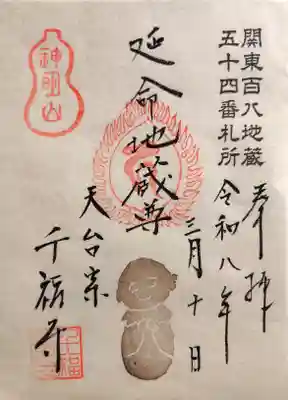 関東百八地蔵
五十四番札所
奉拝
令和八年
三月十日
延命地蔵尊
天台宗
千福寺
神明山
千福寺